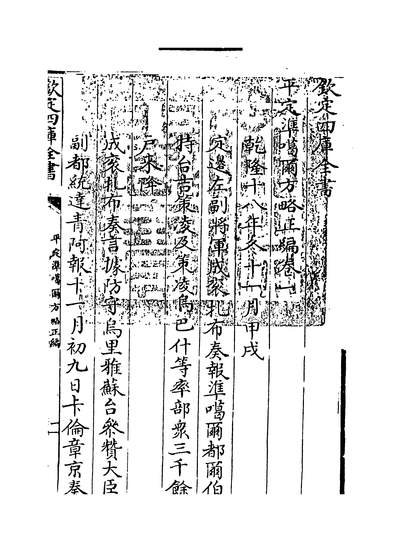 欽定四庫全書
平定準噶爾方略正編卷一
乾隆十八年冬十一月甲戌
定邊左副將軍成衮扎布奏報準噶爾都爾伯
特台吉策凌及策凌烏巴什等率部衆三千餘
户來降
成衮扎布奏言據防守烏里雅蘇台參贊大臣
副都統達青阿報十一月初九日卡倫章京奏
欽定四庫全書
平定準噶爾方略正編